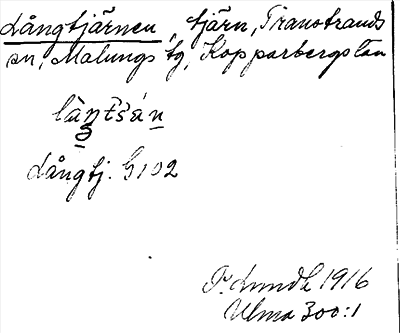 Långtjärnen, tjärn, Transtrands
sn, Malungs tg, Kopparbergs län
Långtj. G102
P. Lundh 1916
Ulma 300:1